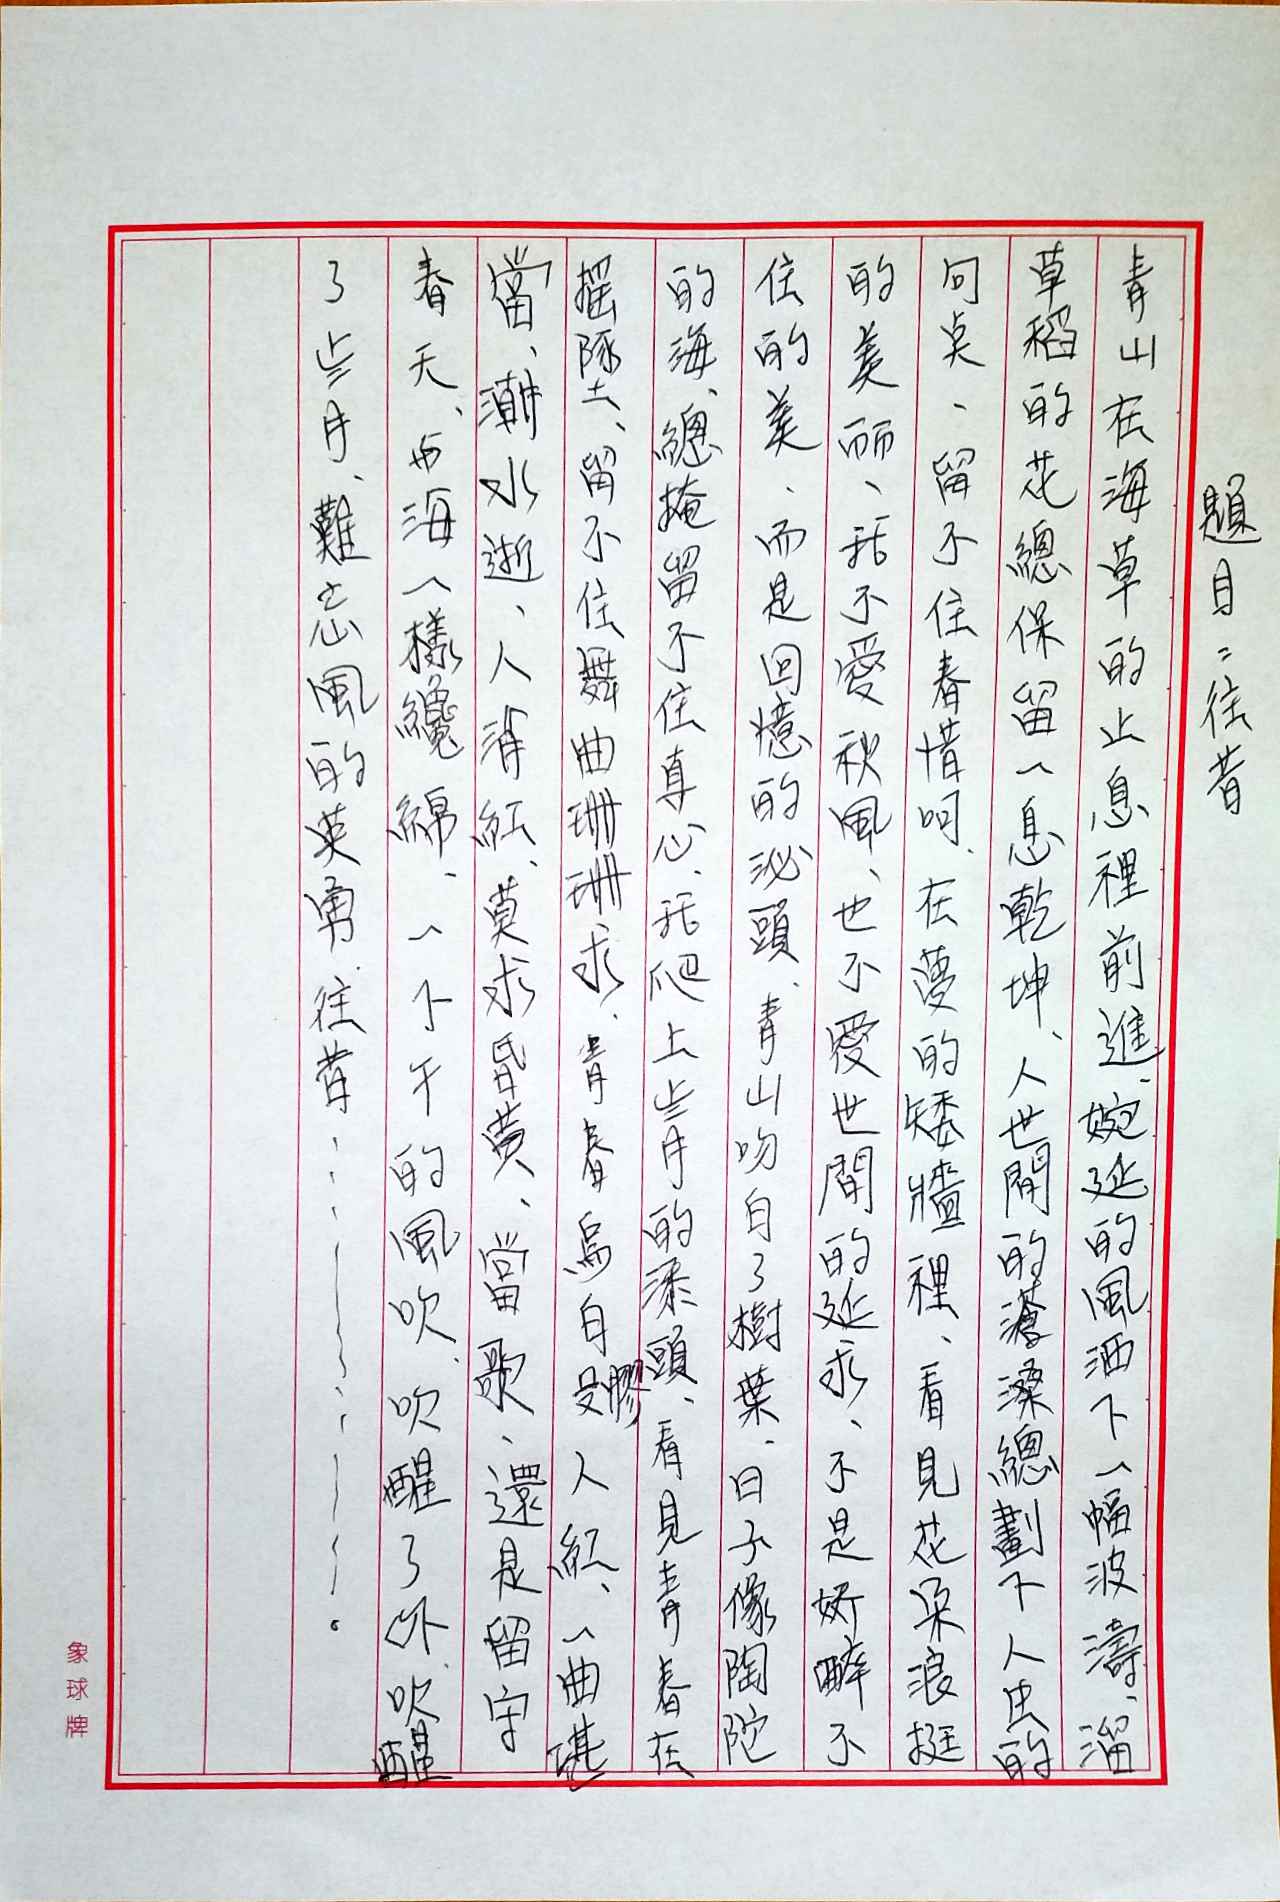 題目：往昔
青山在海草的止息裡前進、婉延的風洒下一幅波濤、溜
草稻的花總保留一息乾坤、人世間的滄桑總劃下人虫的
句点、留不住春惜呵、在蔓的矮牆裡、看見花朵浪挺
的美丽、活不愛秋風、也不愛世間的延求、不是娇醉不
住的美、而是回憶的泌頭、青山吻自了樹葉、日子像陶陀
的海、總掩留不住真心、活爬上些月的漆頭、看見青春在
摇墜、留不住舞曲珊珊求、青春為自膠 人紅、一曲堪
當、潮水逝、人消紅、莫求昏黄、當歌、還是留守
春天、与海一樣纏綿、一下午的風吹、吹醒了外、吹醒
了些月、難忘風的英勇、往昔
象球牌